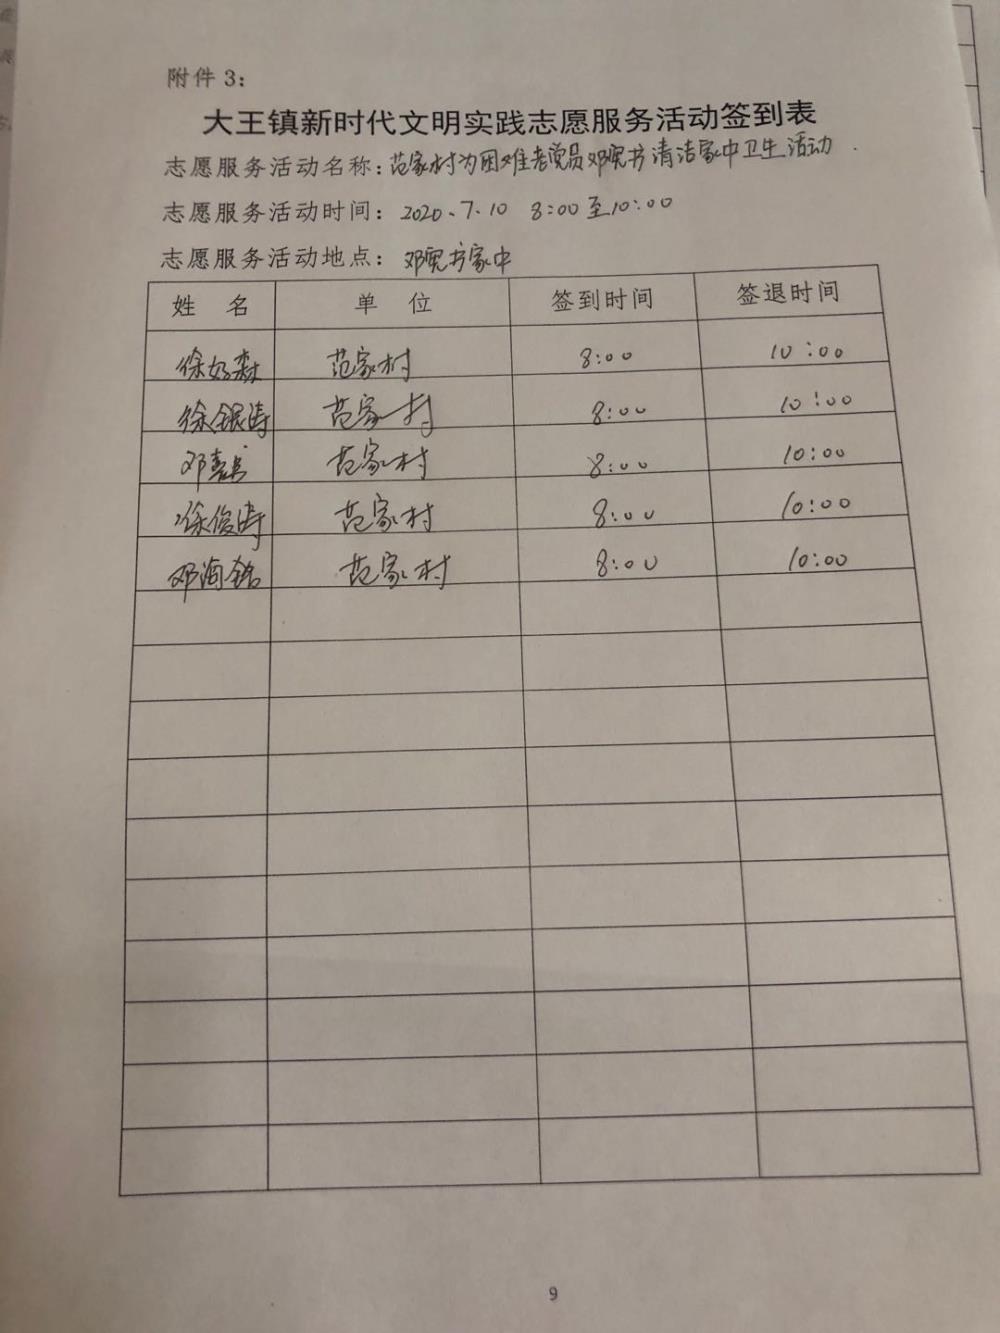 附件3：
大王镇新时代文明实践志愿服务活动签到表
志愿服务活动名称：范家村为困难老党员邓宪书清洁家中卫生活动.
志愿服务活动时间：2020.7.10 8:00至10:00
志愿服务活动地点：邓宪书家中
姓 名 单 位 签到时间 签退时间
徐好森 范家村 8:00 10:00
徐银涛 范家村 8:00 10:00
邓 范家村 8:00 10:00
徐俊涛 范家村 8:00 10:00
邓海铭 范家村 8:00 10:00
9